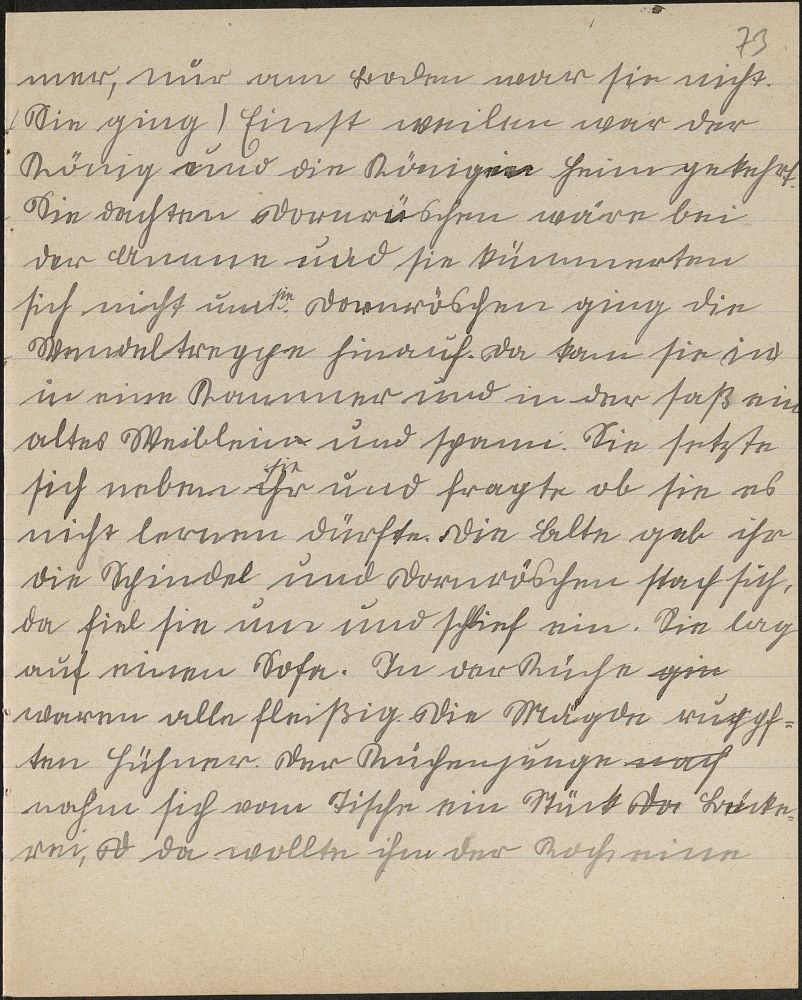 73
mer, nur am Boden war sie nicht.
(Sie ging) Einst weilen war der
König und die Königin heim gekehrt.
Sie dachten Dornröschen wäre bei
der Amme und sie kümmerten
sich nicht um sie. Dornröschen ging die
Wendeltreppe hinauf. Da kam sie in
in eine Kammer und in der saß ein
altes Weiblein und spann. Sie setzte
sich neben sie und fragte ob sie es
nicht lernen dürfte. Die Alte gab ihr
die Schindel und Dornröschen stach sich,
da fiel sie um und schlief ein. Sie lag
auf einen Sofa. In der Küche gin
waren alle fleißig. Die Mägde rupf-
ten Hühner. Der Küchenjunge nach
nahm sich vom Tische ein Stück Da Bäcke-
rei, D da wollte ihm der Koch eine